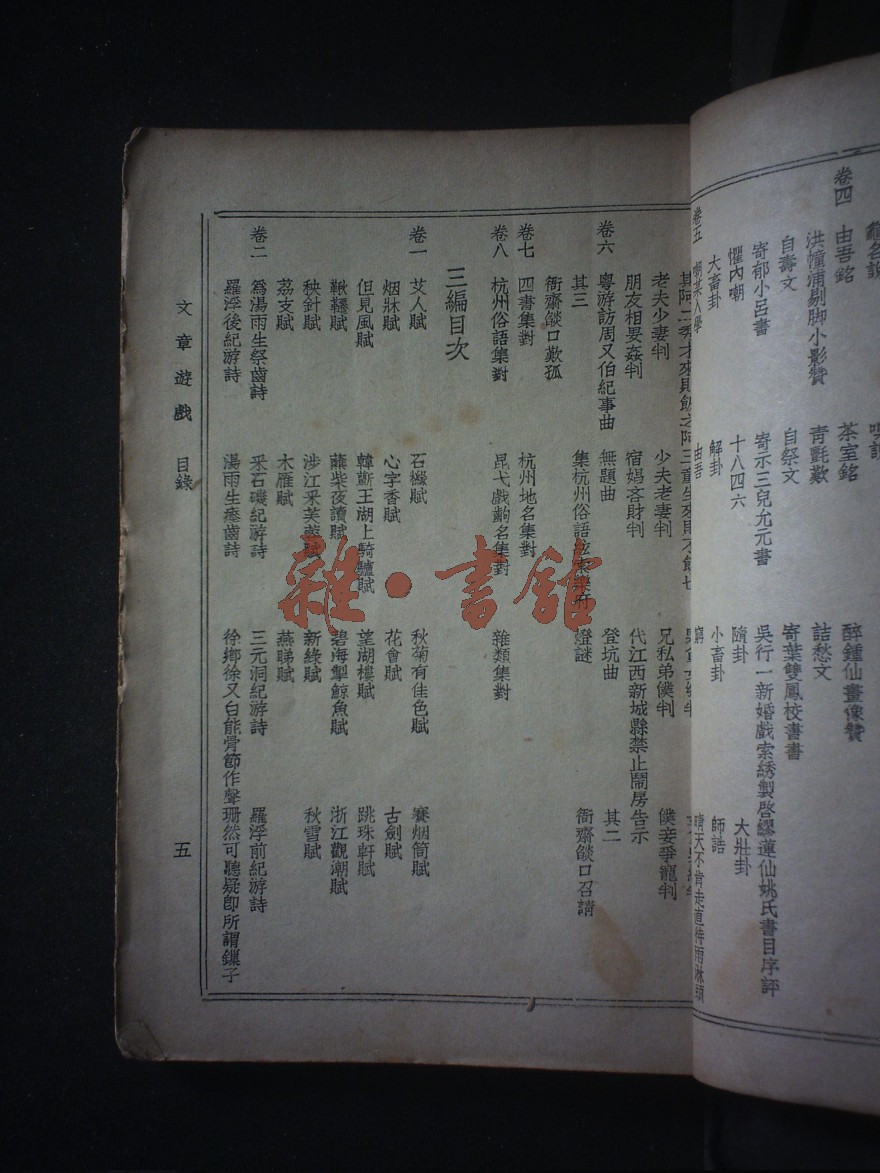 卷四　由吾銘　茶室銘　醉鍾仙畫像贊
洪幢浦剔脚小影贊　青氈歎　詰愁文
自壽文　自祭文　寄葉雙鳳校書書
寄郁小呂書　寄示三兒允元書　吳行一新婚戲索綉製啓繆蓮仙姚氏書目序評
懼內嘲　十八四六　隨卦　大壯卦
大畜卦　解卦　小畜卦　師誥
卷五　由吾
老夫少妻判　少夫老妻判　兄私弟僕判　僕妾爭寵判
朋友相毀姦判　宿娼吝財判　代江西新城縣禁止鬧房告示
卷六　粵游訪周又伯紀事曲　無題曲　登坑曲　其二
其三　集杭州俗語　燈謎　衙齋燄口召請
衙齋燄口歎孤
卷七　四書集對　杭州地名集對
卷八　杭州俗語集對　昆弋戲齣名集對　雜類集對
三編目次
卷一　艾人賦　石櫞賦　秋菊有佳色賦　賽烟筒賦
烟牀賦　心字香賦　花會賦　古劍賦
但見風賦　韓蘄王湖上騎驢賦　望湖樓賦　跳珠軒賦
鞦韆賦　爇柴夜讀賦　碧海掣鯨魚賦　浙江觀潮賦
秧針賦　涉江采芙蓉賦　新綠賦　秋雪賦
荔支賦　木雁賦　燕睇賦
卷二　爲湯雨生祭齒詩　采石磯紀游詩　三元洞紀游詩　羅浮前紀游詩
羅浮後紀游詩　湯雨生瘞齒詩　徐鄉徐又白能骨節作聲珊然可聽疑卽所謂鏁子
文章遊戲　目錄　五
雜·書館